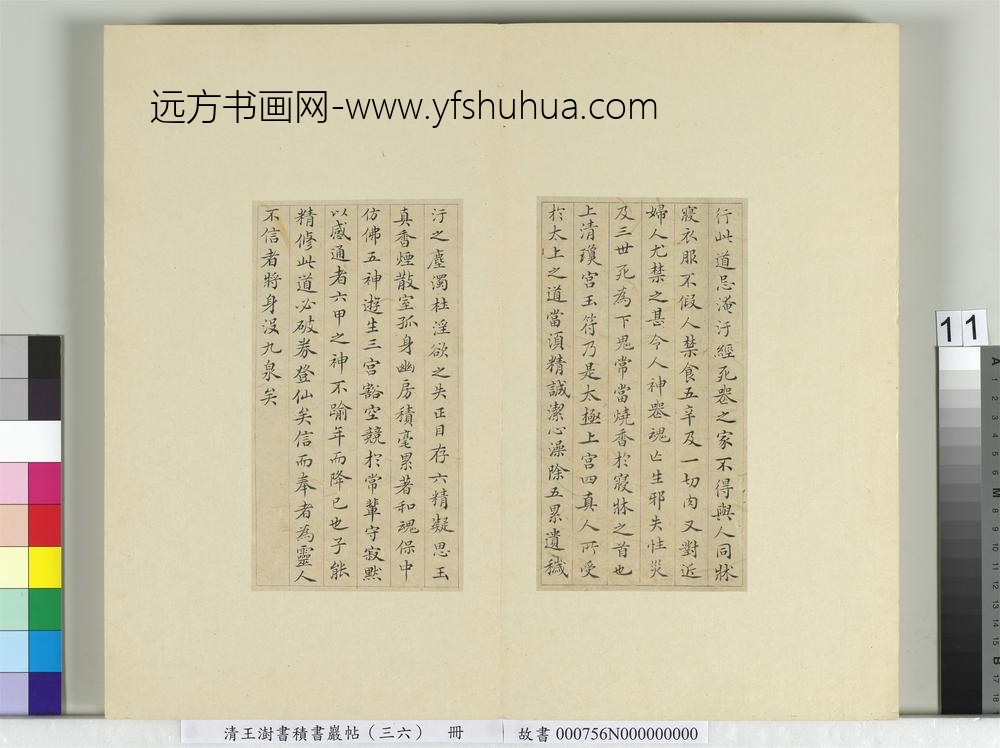 远方书画网-www.yfshuhua.com
行此道忌淹汙經死喪之家不得與人同牀
寢衣服不假人禁食五辛及一切肉又對近
婦人尤禁之甚令人神喪魂亡生邪失性災
及三世死為下鬼常當燒香於寢牀之首也
上清瓊宮玉符乃是太極上宮四真人所受
於太上之道當須精誠潔心澡除五累遺穢
汙之塵濁杜淫欲之失正目存六精凝思玉
真香煙散室孤身幽房積毫累著和魂保中
仿佛五神遊生三宮豁空競於常輩守寂默
以感通者六甲之神不踰年而降已也子能
精修此道必破券登仙矣信而奉者為靈人
不信者將身沒九泉矣
11
清王澍書積書巖帖（三六） 冊
故書 000756N000000000